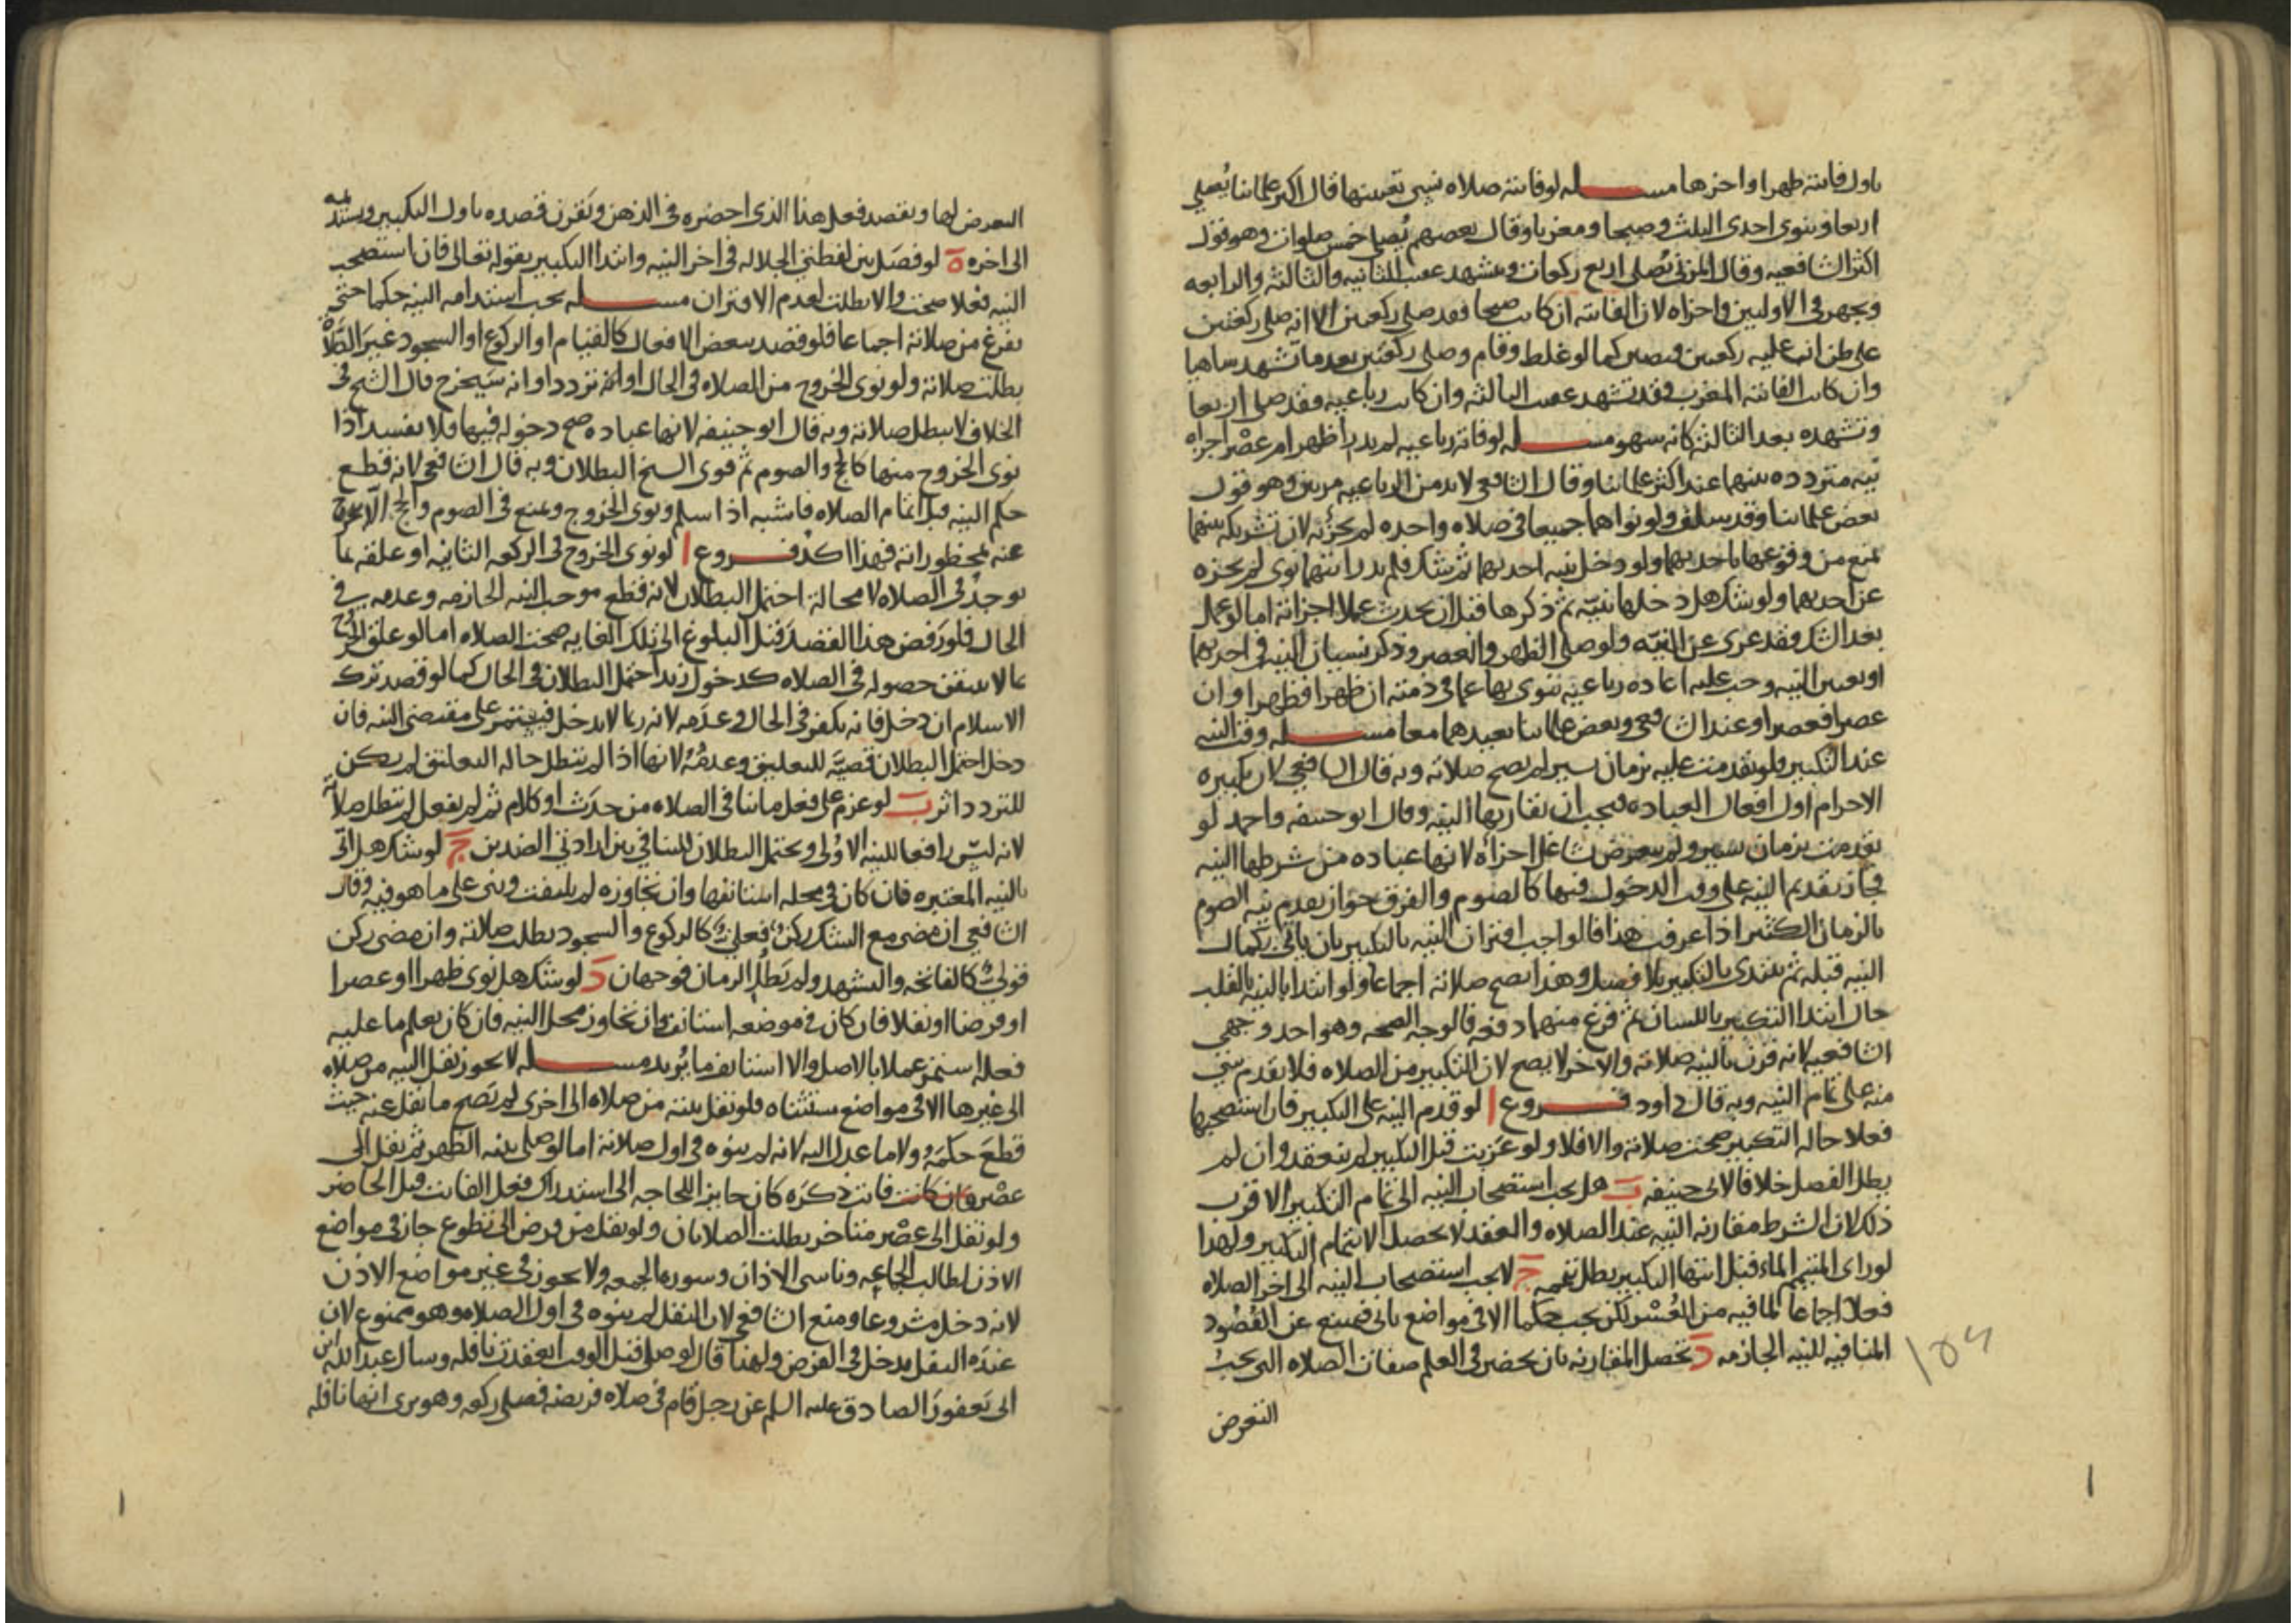 باول فائتة ظهرا واخرها مسله لو فاتته صلاه نسي تعيينها قال اكثر علمائنا يصلي
اربعا وينوي احدى الثلث وصبحا ومغربا وقال بعضهم يصلي خمس صلوات وهو قول
اكثر الشافعيه وقال المزني يصلي اربع ركعات ويتشهد عقيب الثانيه والثالثه والرابعه
ويجهر في الاوليين واجزاه لان الفائته ان كانت صبحا فقد صلى ركعتين الا انه صلى ركعتين
على ظن انه عليه ركعتين فيصير كما لو غلط وقام وصلى ركعتين بعد ما تشهد ساهيا
وان كانت الفائته المغرب فقد تشهد عقيب الثالثه وان كانت رباعيه فقد صلى اربعا
وتشهده بعد الثالثه كانه سهو مسله لو فاته رباعيه لم يدر أظهر ام عصر اجزاه
نيه متردده بينهما عند اكثر علمائنا وقال الشافعي لا بد من الرباعيه مرتين وهو قول
بعض علمائنا وقد سلف ولو نواهما جميعا في صلاه واحده لم يجزئه لان تشريكه بينهما
يمنع من وقوعها باحديهما ولو دخل بنيه احديهما ثم شك فلم يدر ايتهما نوى لم يجزه
عن احديهما ولو شك هل دخلها بنيه ثم ذكرها قبل ان يحدث عملا اجزاته اما لو عمل
بعد الشك فقد عرى عن النيه ولو صلى الظهر والعصر وذكر نسيان النيه في احديهما
او تعيين النيه وجب عليه اعاده رباعيه ينوي بها عما في ذمته ان ظهرا فظهرا وان
عصرا فعصرا وعند الشافعي وبعض علمائنا يعيدهما معا مسله وقت النيه
عند التكبير فلو تقدمت عليه بزمان يسير لم يصح صلاته وبه قال الشافعي لان تكبيره
الاحرام اول افعال العباده فيجب ان تقارنها النيه وقال ابو حنيفه واحمد لو
تقدمت بزمان يسير ولم يتعرض شاغل اجزاه لانها عباده من شرطها النيه
فجاز تقديم النيه على وقت الدخول فيها كالصوم والفرق جواز تقدم نيه الصوم
بالزمان الكثير اذا عرفت هذا فالواجب اقتران النيه بالتكبير بان ياتي بكمال
النيه قبله ثم يبتدى بالتكبير بلا فصل وهذا يصح صلاته اجماعا ولو ابتدا بالنيه بالقلب
حال ابتدا التكبير باللسان ثم فرغ منهما دفعه فالوجه الصحه وهو احد وجهي
الشافعيه لانه قرن بالنيه صلاته والاخر لا يصح لان التكبير من الصلاه فلا يقدم شي
منه على تمام النيه وبه قال داود فروع ا لو قدم النيه على التكبير فان استصحبها
فعلا حاله التكبير صحت صلاته والا فلا ولو عزبت قبل التكبير لم ينعقد وان لم
يطل الفصل خلافا لابي حنيفه ب هل يجب استصحاب النيه الى تمام التكبير الاقرب
ذلك لان الشرط مقارنه النيه عند الصلاه والعقد لا يحصل الا بتمام التكبير ولهذا
لو راى المتيمم الماء قبل انتها التكبير بطل تيممه ج لا يجب استصحاب النيه الى اخر الصلاه
فعلا اجماعا لما فيه من العسر لكن يجب حكما الا في مواضع ياتي فيمتنع عن القصود
المنافيه للنيه الجازمه د تحصل المقارنه بان يحضر في العلم صفات الصلاه التي يجب
التعرض
التعرض لها ويقصد فعل هذا الذي احضره في الذهن ويقرن قصده باول التكبير ويستديمه
الى اخره ه لو فصل بين لفظتي الجلاله في اخر النيه وابتدا التكبير بقوله تعالى فان استصحب
النيه فعلا صحت والا بطلت لعدم الاقتران مسله يجب استدامه النيه حكما حتى
يفرغ من صلاته اجماعا فلو قصد ببعض الافعال كالقيام او الركوع او السجود غير الصلاه
بطلت صلاته ولو نوى الخروج من الصلاه في الحال او انه تردد او انه سيخرج قال الشيخ في
الخلاف لا يبطل صلاته وبه قال ابو حنيفه لانها عباده صح دخوله فيها فلا تفسد اذا
نوى الخروج منها كالحج والصوم ثم قوى الشيخ البطلان وبه قال الشافعي لانه قطع
حكم النيه قبل اتمام الصلاه فاشبه اذا سلم ونوى الخروج ويمنع في الصوم والحج
عنه بمحظوراته فهذا اكد فروع ا لو نوى الخروج في الركعه الثانيه او علقه بما
يوجد في الصلاه لا محالة احتمل البطلان لانه قطع موجب النيه الجازمه وعدمه في
الحال فلو رفض هذا القصد قبل البلوغ الى تلك الغايه صحت الصلاه اما لو علق الخروج
بما لا يتيقن حصوله في الصلاه كدخول زيد احتمل البطلان في الحال كما لو قصد ترك
الاسلام ان دخل فانه يكفر في الحال وعدمه لانه ربما لا يدخل فيستمر على مقتضى النيه فان
دخل احتمل البطلان قضيّه للتعليق وعدمُه لانها اذا لم تبطل حاله التعليق لم يكن
للتردد اثر ب لو عزم على فعل ما ينافي الصلاه من حدث او كلام ثم لم يفعل لم تبطل صلاته
لانه ليس رافعا للنيه الاولى ويحتمل البطلان للتنافي بين ارادتي الضدين ج لو شك هل اتى
بالنيه المعتبره فان كان في محله استانفها وان تجاوزه لم يلتفت وبنى على ما هو فيه وقال
الشافعي ان مضى مع الشك ركن فعلي كالركوع والسجود بطلت صلاته وان مضى ركن
قولي كالفاتحه والتشهد ولم يطل الزمان فوجهان د لو شك هل نوى ظهرا او عصرا
او فرضا او نفلا فان كان في موضعه استانف وان تجاوز محل النيه فان كان يعلم ما عليه
فعله استمر عملا بالاصل والا استانف ما يريد مسله لا يجوز نقل النيه من صلاه
الى غيرها الا في مواضع ستثناه فلو نقل نيته من صلاه الى اخرى لم تصح ما نقل عنه حيث
قطع حكمه ولا ما عدل اليه لانه لم ينوه في اول صلاته اما لو صلى بنيه الظهر ثم نقل الى
عصر فان كانت فائت ذكره كان جايزا للحاجه الى استدراك فعل الفائت قبل الحاضر
ولو نقل الى عصر متاخر بطلت الصلاتان ولو نقل من فرض الى تطوع جاز في مواضع
الاذن لطالب الجماعه وناسي الاذان وسورة الجمعه ولا يجوز في غير مواضع الاذن
لانه دخل مشروعا ومنع الشافعي لان النفل لم ينوه في اول الصلاه وهو ممنوع لان
عنده النفل يدخل في الفرض ولهذا قال لو صلى قبل الوقت انعقدت نافله وسال عبد الله ابن
ابي يعفور الصادق عليه السلم عن رجل قام في صلاه فريضه فصلى ركعه وهو يرى انها نافله